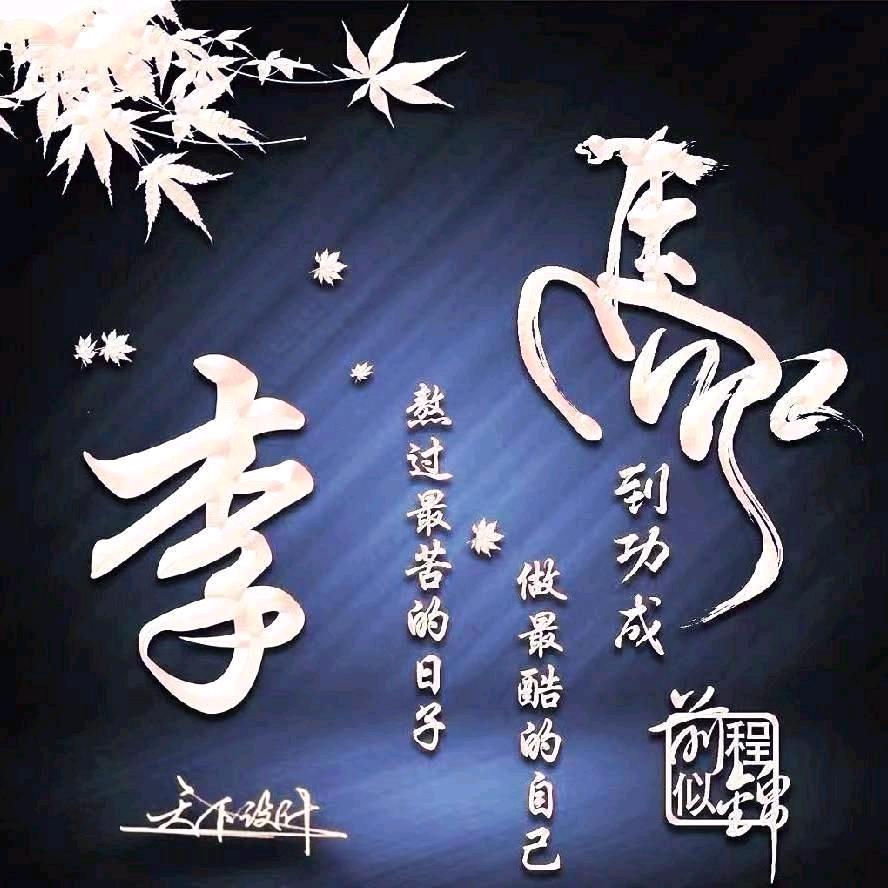 李
熬过最苦的日子
做最酷的自己
馬
到功成
前程似锦
天下设计